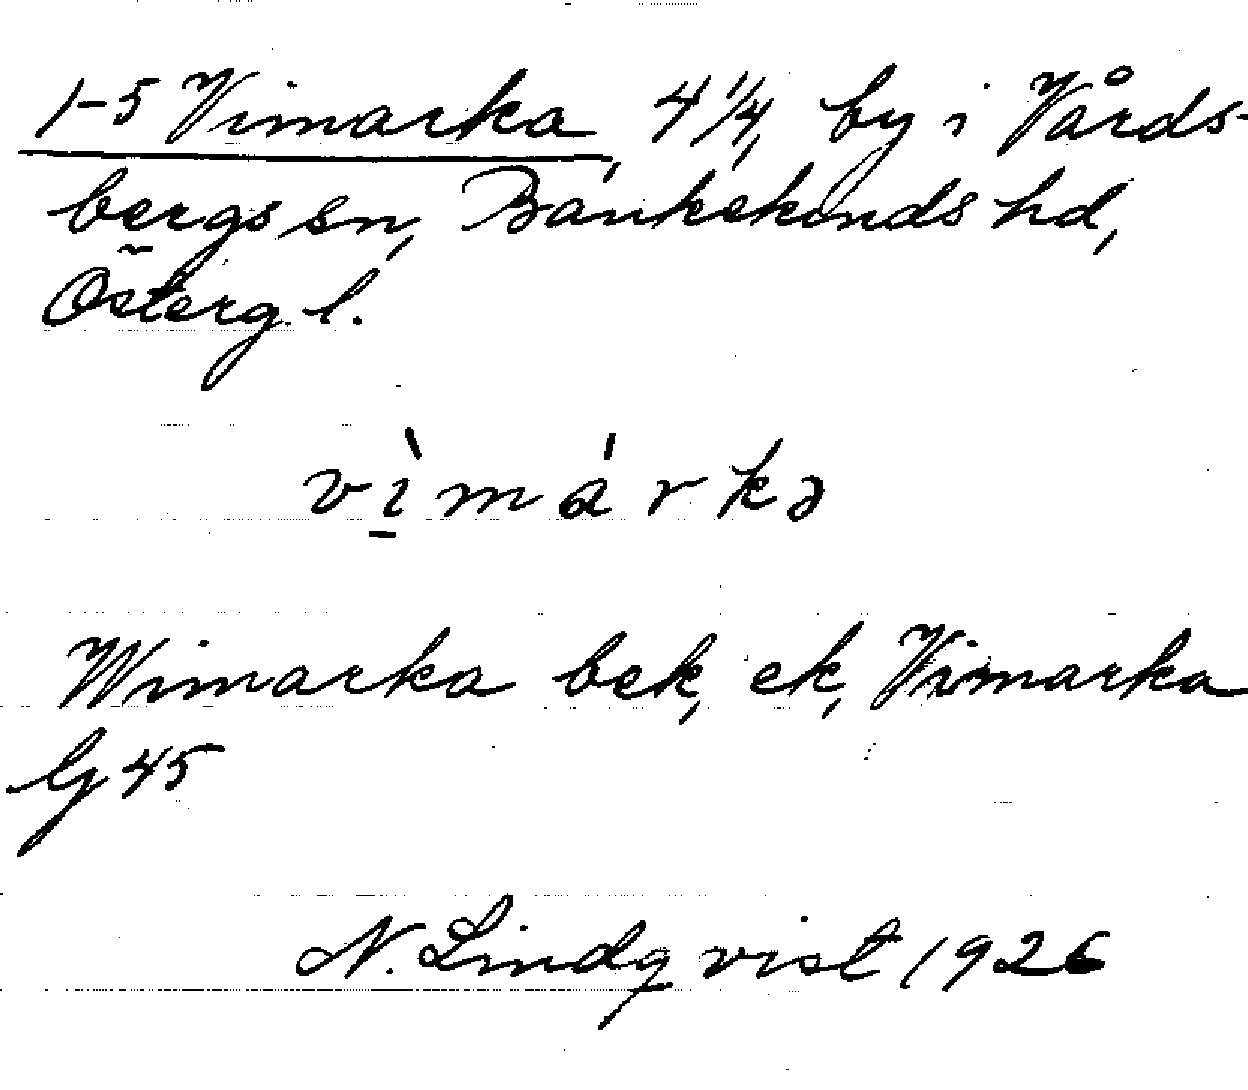 1-5 Vimarka, 4 1/4, by i Vårds-
bergs sn, Bankekinds hd,
Österg. l.
vì̱márkə
Wimarka bek, ek, Vimarka
G 45
N. Lindqvist 1926